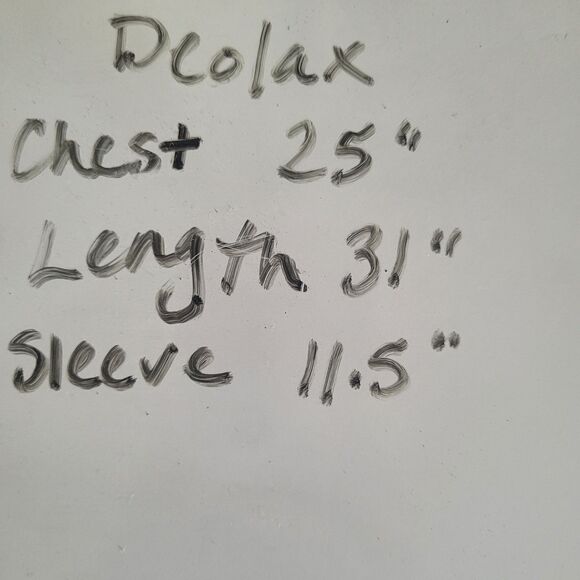 Dcolax
Chest 25"
Length 31"
Sleeve 11.5"